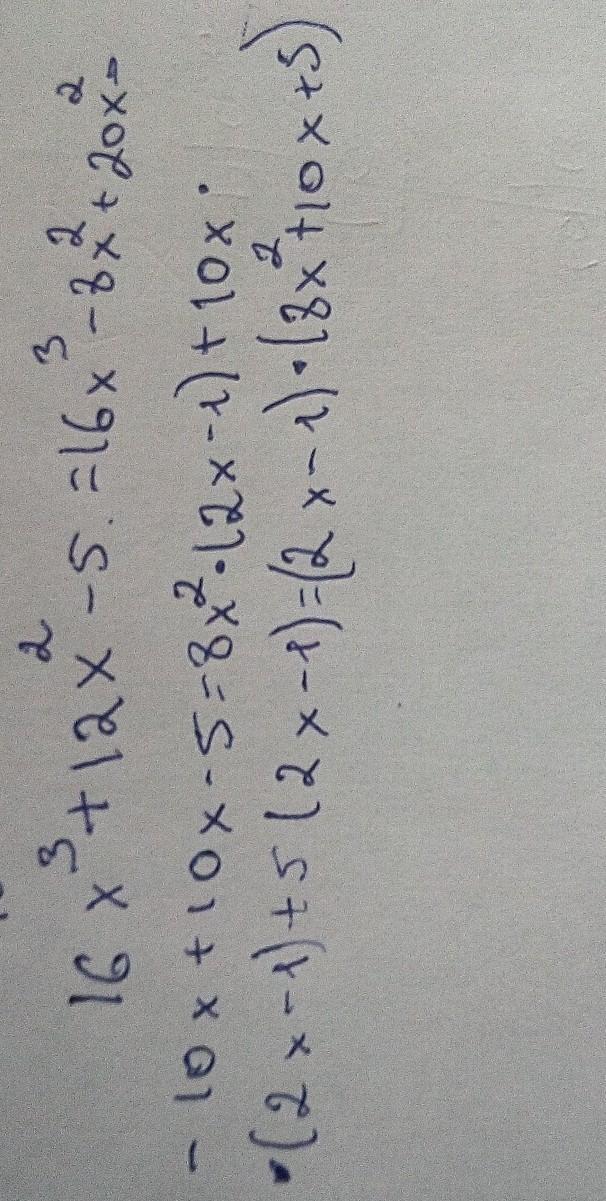 16x³+12x²-5.=16x³-8x²+20x²-
-10x+10x-5=8x²•(2x-1)+10x•
•(2x-1)+5(2x-1)=(2x-1)•(8x²+10x+5)